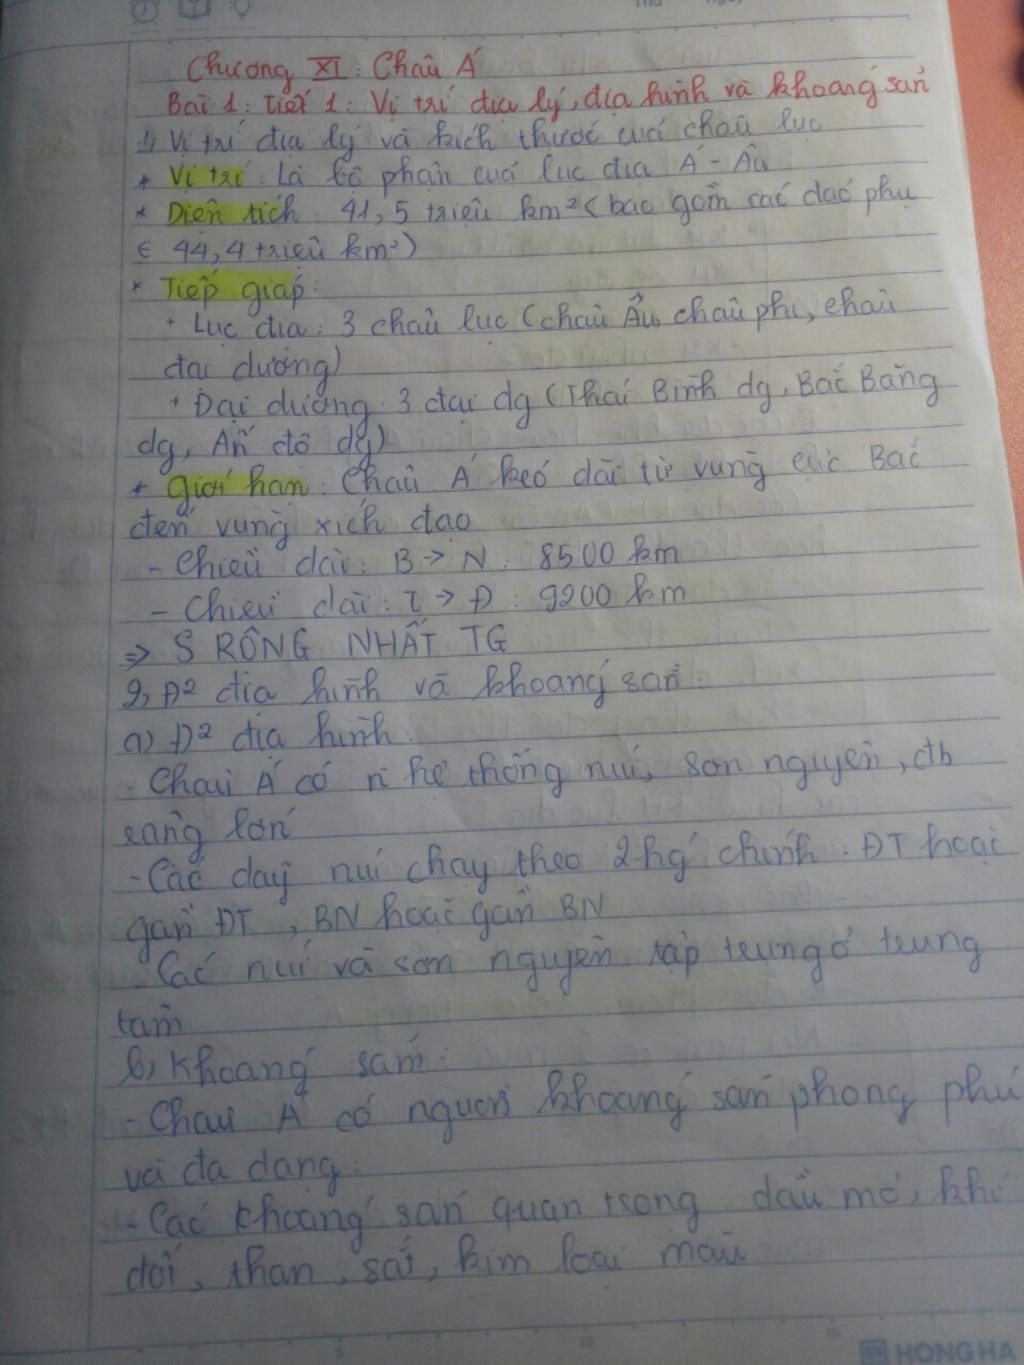 Chương XI: Châu Á
Bài 1: Tiết 1: Vị trí địa lý, địa hình và khoáng sản
1, Vị trí địa lý và kích thước cuả châu lục
* Vị trí: Là bộ phận cuả lục địa Á - Âu
* Diện tích: 41,5 triệu km² (bao gồm các đảo phụ
∈ 44,4 triệu km²)
* Tiếp giáp:
+ Lục địa: 3 châu lục (châu Âu, châu phi, châu
đại dương)
+ Đại dương: 3 đại dg (Thái Bình dg, Bắc Băng
dg, Ấn độ dg)
* Giới hạn: Châu Á kéo dài từ vùng cực Bắc
đến vùng xích đạo
- Chiều dài: B → N: 8500 km
- Chiều dài: T → Đ: 9200 km
=> S RỘNG NHẤT TG
2, Đ² địa hình và khoáng sản:
a) Đ² địa hình:
- Châu Á có n hệ thống núi, sơn nguyên, đb
rộng lớn
- Các dãy núi chạy theo 2 hg chính: ĐT hoặc
gần ĐT, BN hoặc gần BN
- Các núi và sơn nguyên tập trung ở trung
tâm
b) Khoáng sản:
- Châu Á có nguồn khoáng sản phong phú
và đa dạng:
- Các khoáng sản quan trọng dầu mỏ, khí
đốt, than, sắt, kim loại màu
HONG HA